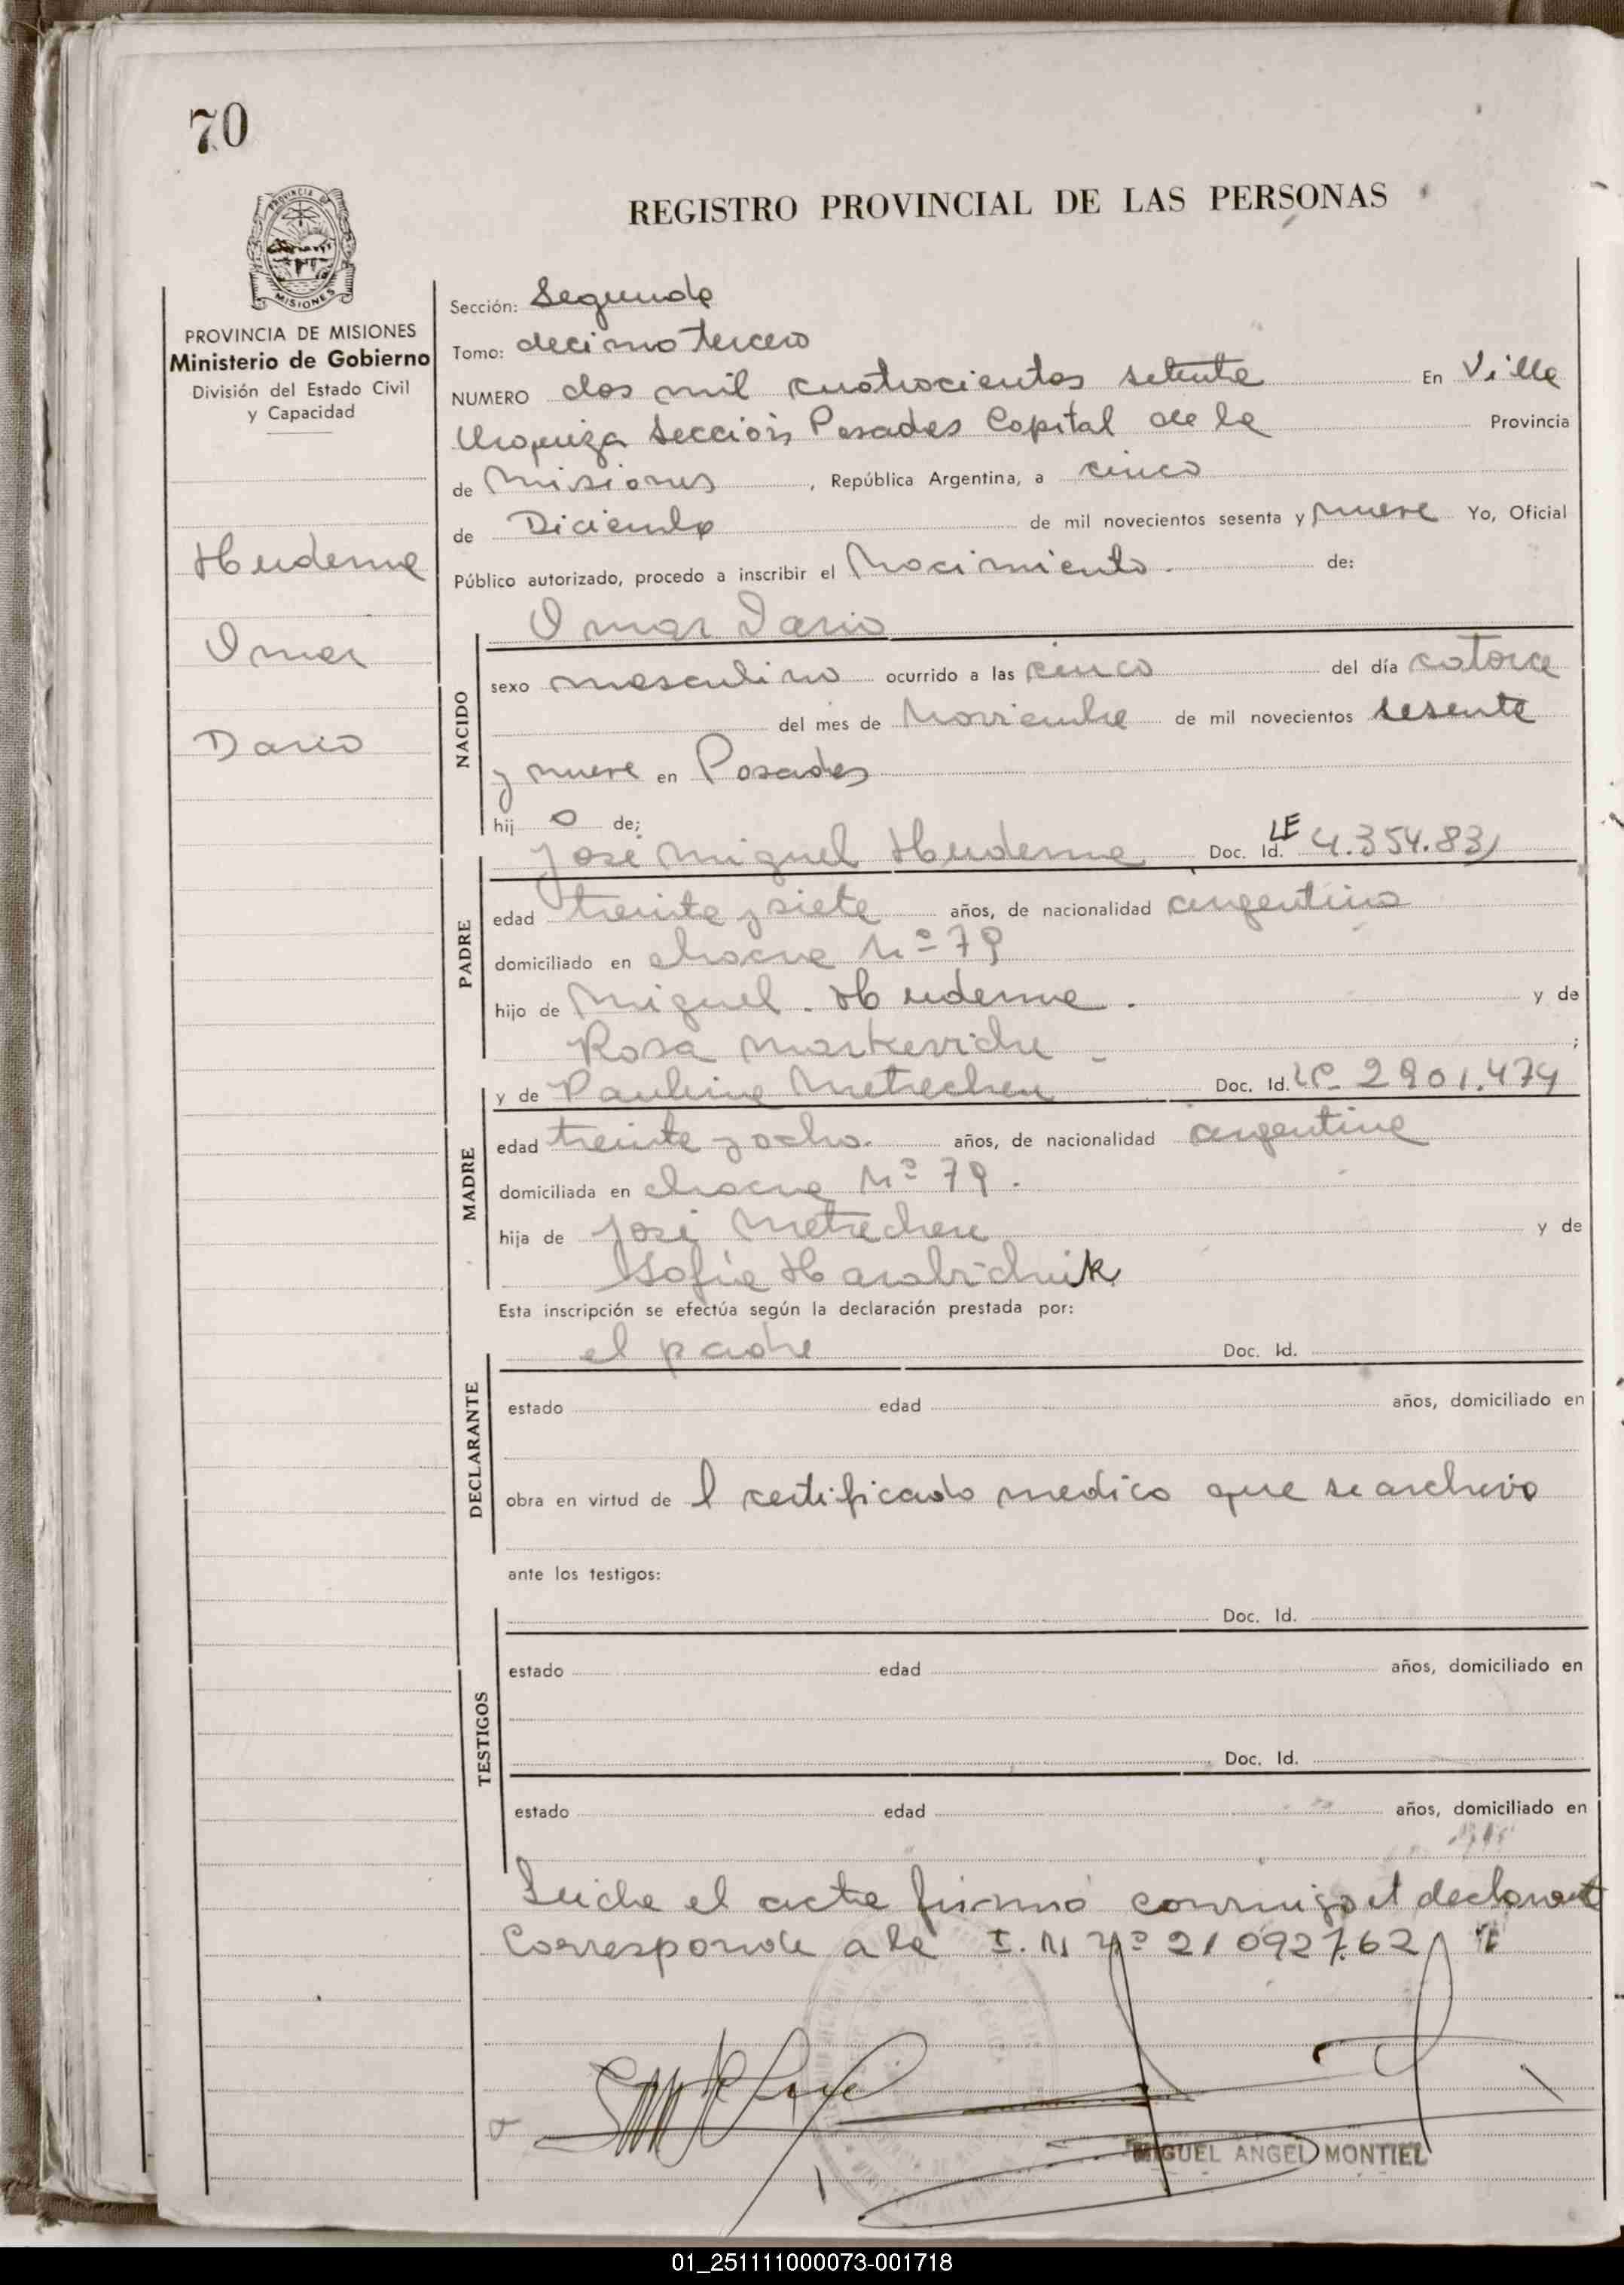 70
REGISTRO PROVINCIAL DE LAS PERSONAS
PROVINCIA DE MISIONES
MISIONES
PROVINCIA DE MISIONES
Ministerio de Gobierno
División del Estado Civil
y Capacidad
Huderne
Omar
Dario
Sección: Segunda
Tomo: decimo tercero
NUMERO dos mil cuatrocientos setenta En Villa
Urquiza Sección Posadas Capital de la Provincia
de Misiones, República Argentina, a cinco
de Diciembre de mil novecientos sesenta y nueve Yo, Oficial
Público autorizado, procedo a inscribir el Nacimiento de:
NACIDO
Omar Dario
sexo masculino ocurrido a las cinco del día catorce
del mes de Noviembre de mil novecientos sesenta
y nueve en Posadas
hij o de;
PADRE
José Miguel Huderne Doc. Id. LE 4.354.831
edad treinta y siete años, de nacionalidad argentino
domiciliado en chacra Nº 79
hijo de Miguel Huderne. y de
Rosa Markeviche - ;
MADRE
y de Paulina Metrechen Doc. Id. LC 2901.474
edad treinta y ocho. años, de nacionalidad argentina
domiciliada en chacra Nº 79.
hija de José Metrechen y de
Sofia Harabichuik
Esta inscripción se efectúa según la declaración prestada por:
DECLARANTE
el padre Doc. Id.
estado edad años, domiciliado en
obra en virtud de l certificado medico que se archiva
ante los testigos:
TESTIGOS
Doc. Id.
estado edad años, domiciliado en
Doc. Id.
estado edad años, domiciliado en
Leida el acta firmó conmigo el declarante
Corresponde a la I. N Nº 21092762
MIGUEL ANGEL MONTIEL
01_251111000073-001718